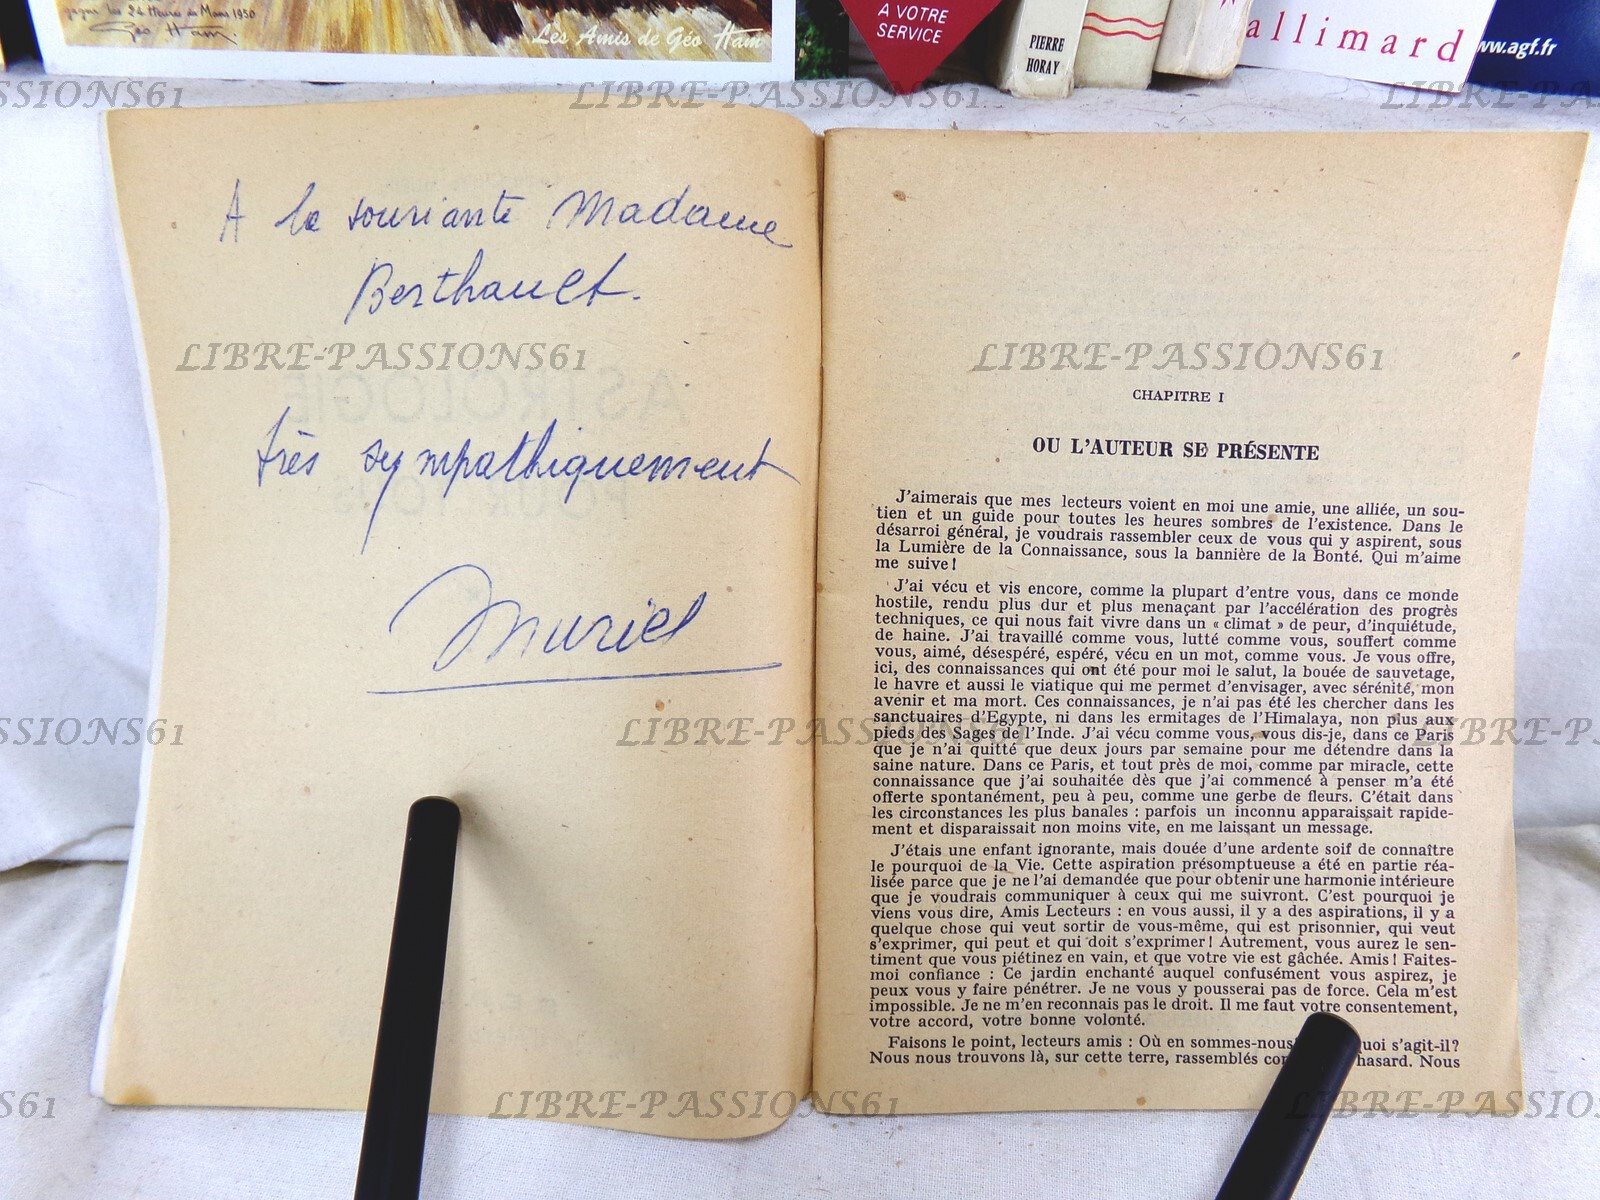 gagne les 24 Heures du Mans 1950
Géo Ham.
Les Amis de Géo Ham
A VOTRE
SERVICE
PIERRE
HORAY
allimard
ww.agf.fr
LIBRE-PASSIONS61
A la souriante Madame
Berthault.
très sympathiquement
Muriel
ASTROLOGIE
POUR TOUS
CHAPITRE I
OU L'AUTEUR SE PRÉSENTE
J'aimerais que mes lecteurs voient en moi une amie, une alliée, un sou-
tien et un guide pour toutes les heures sombres de l'existence. Dans le
désarroi général, je voudrais rassembler ceux de vous qui y aspirent, sous
la Lumière de la Connaissance, sous la bannière de la Bonté. Qui m'aime
me suive!
J'ai vécu et vis encore, comme la plupart d'entre vous, dans ce monde
hostile, rendu plus dur et plus menaçant par l'accélération des progrès
techniques, ce qui nous fait vivre dans un « climat » de peur, d'inquiétude,
de haine. J'ai travaillé comme vous, lutté comme vous, souffert comme
vous, aimé, désespéré, espéré, vécu en un mot, comme vous. Je vous offre,
ici, des connaissances qui ont été pour moi le salut, la bouée de sauvetage,
le havre et aussi le viatique qui me permet d'envisager, avec sérénité, mon
avenir et ma mort. Ces connaissances, je n'ai pas été les chercher dans les
sanctuaires d'Egypte, ni dans les ermitages de l'Himalaya, non plus aux
pieds des Sages de l'Inde. J'ai vécu comme vous, vous dis-je, dans ce Paris
que je n'ai quitté que deux jours par semaine pour me détendre dans la
saine nature. Dans ce Paris, et tout près de moi, comme par miracle, cette
connaissance que j'ai souhaitée dès que j'ai commencé à penser m'a été
offerte spontanément, peu à peu, comme une gerbe de fleurs. C'était dans
les circonstances les plus banales : parfois un inconnu apparaissait rapide-
ment et disparaissait non moins vite, en me laissant un message.
J'étais une enfant ignorante, mais douée d'une ardente soif de connaître
le pourquoi de la Vie. Cette aspiration présomptueuse a été en partie réa-
lisée parce que je ne l'ai demandée que pour obtenir une harmonie intérieure
que je voudrais communiquer à ceux qui me suivront. C'est pourquoi je
viens vous dire, Amis Lecteurs : en vous aussi, il y a des aspirations, il y a
quelque chose qui veut sortir de vous-même, qui est prisonnier, qui veut
s'exprimer, qui peut et qui doit s'exprimer! Autrement, vous aurez le sen-
timent que vous piétinez en vain, et que votre vie est gâchée. Amis! Faites-
moi confiance : Ce jardin enchanté auquel confusément vous aspirez, je
peux vous y faire pénétrer. Je ne vous y pousserai pas de force. Cela m'est
impossible. Je ne m'en reconnais pas le droit. Il me faut votre consentement,
votre accord, votre bonne volonté.
Faisons le point, lecteurs amis : Où en sommes-nous uoi s'agit-il?
Nous nous trouvons là, sur cette terre, rassemblés hasard. Nous